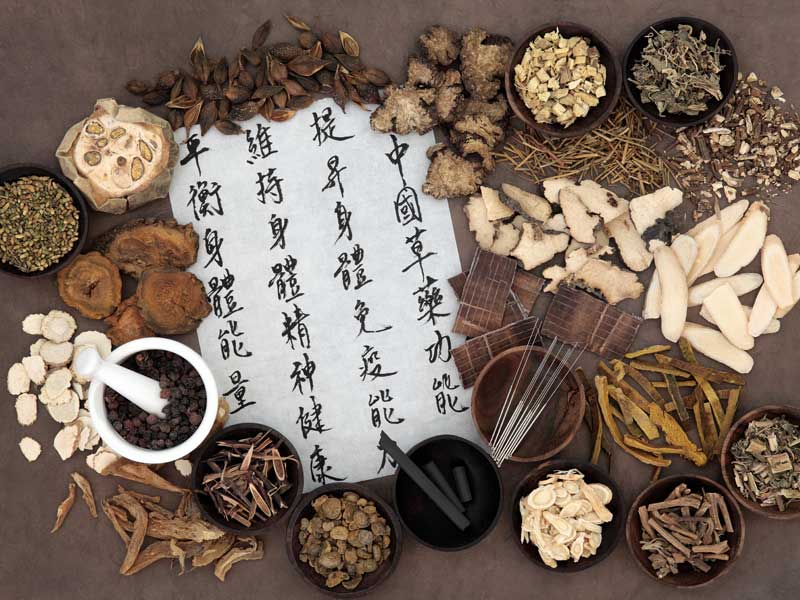 中國草藥功能
提昇身體免疫能
維持身體精神健康
平衡身體能量